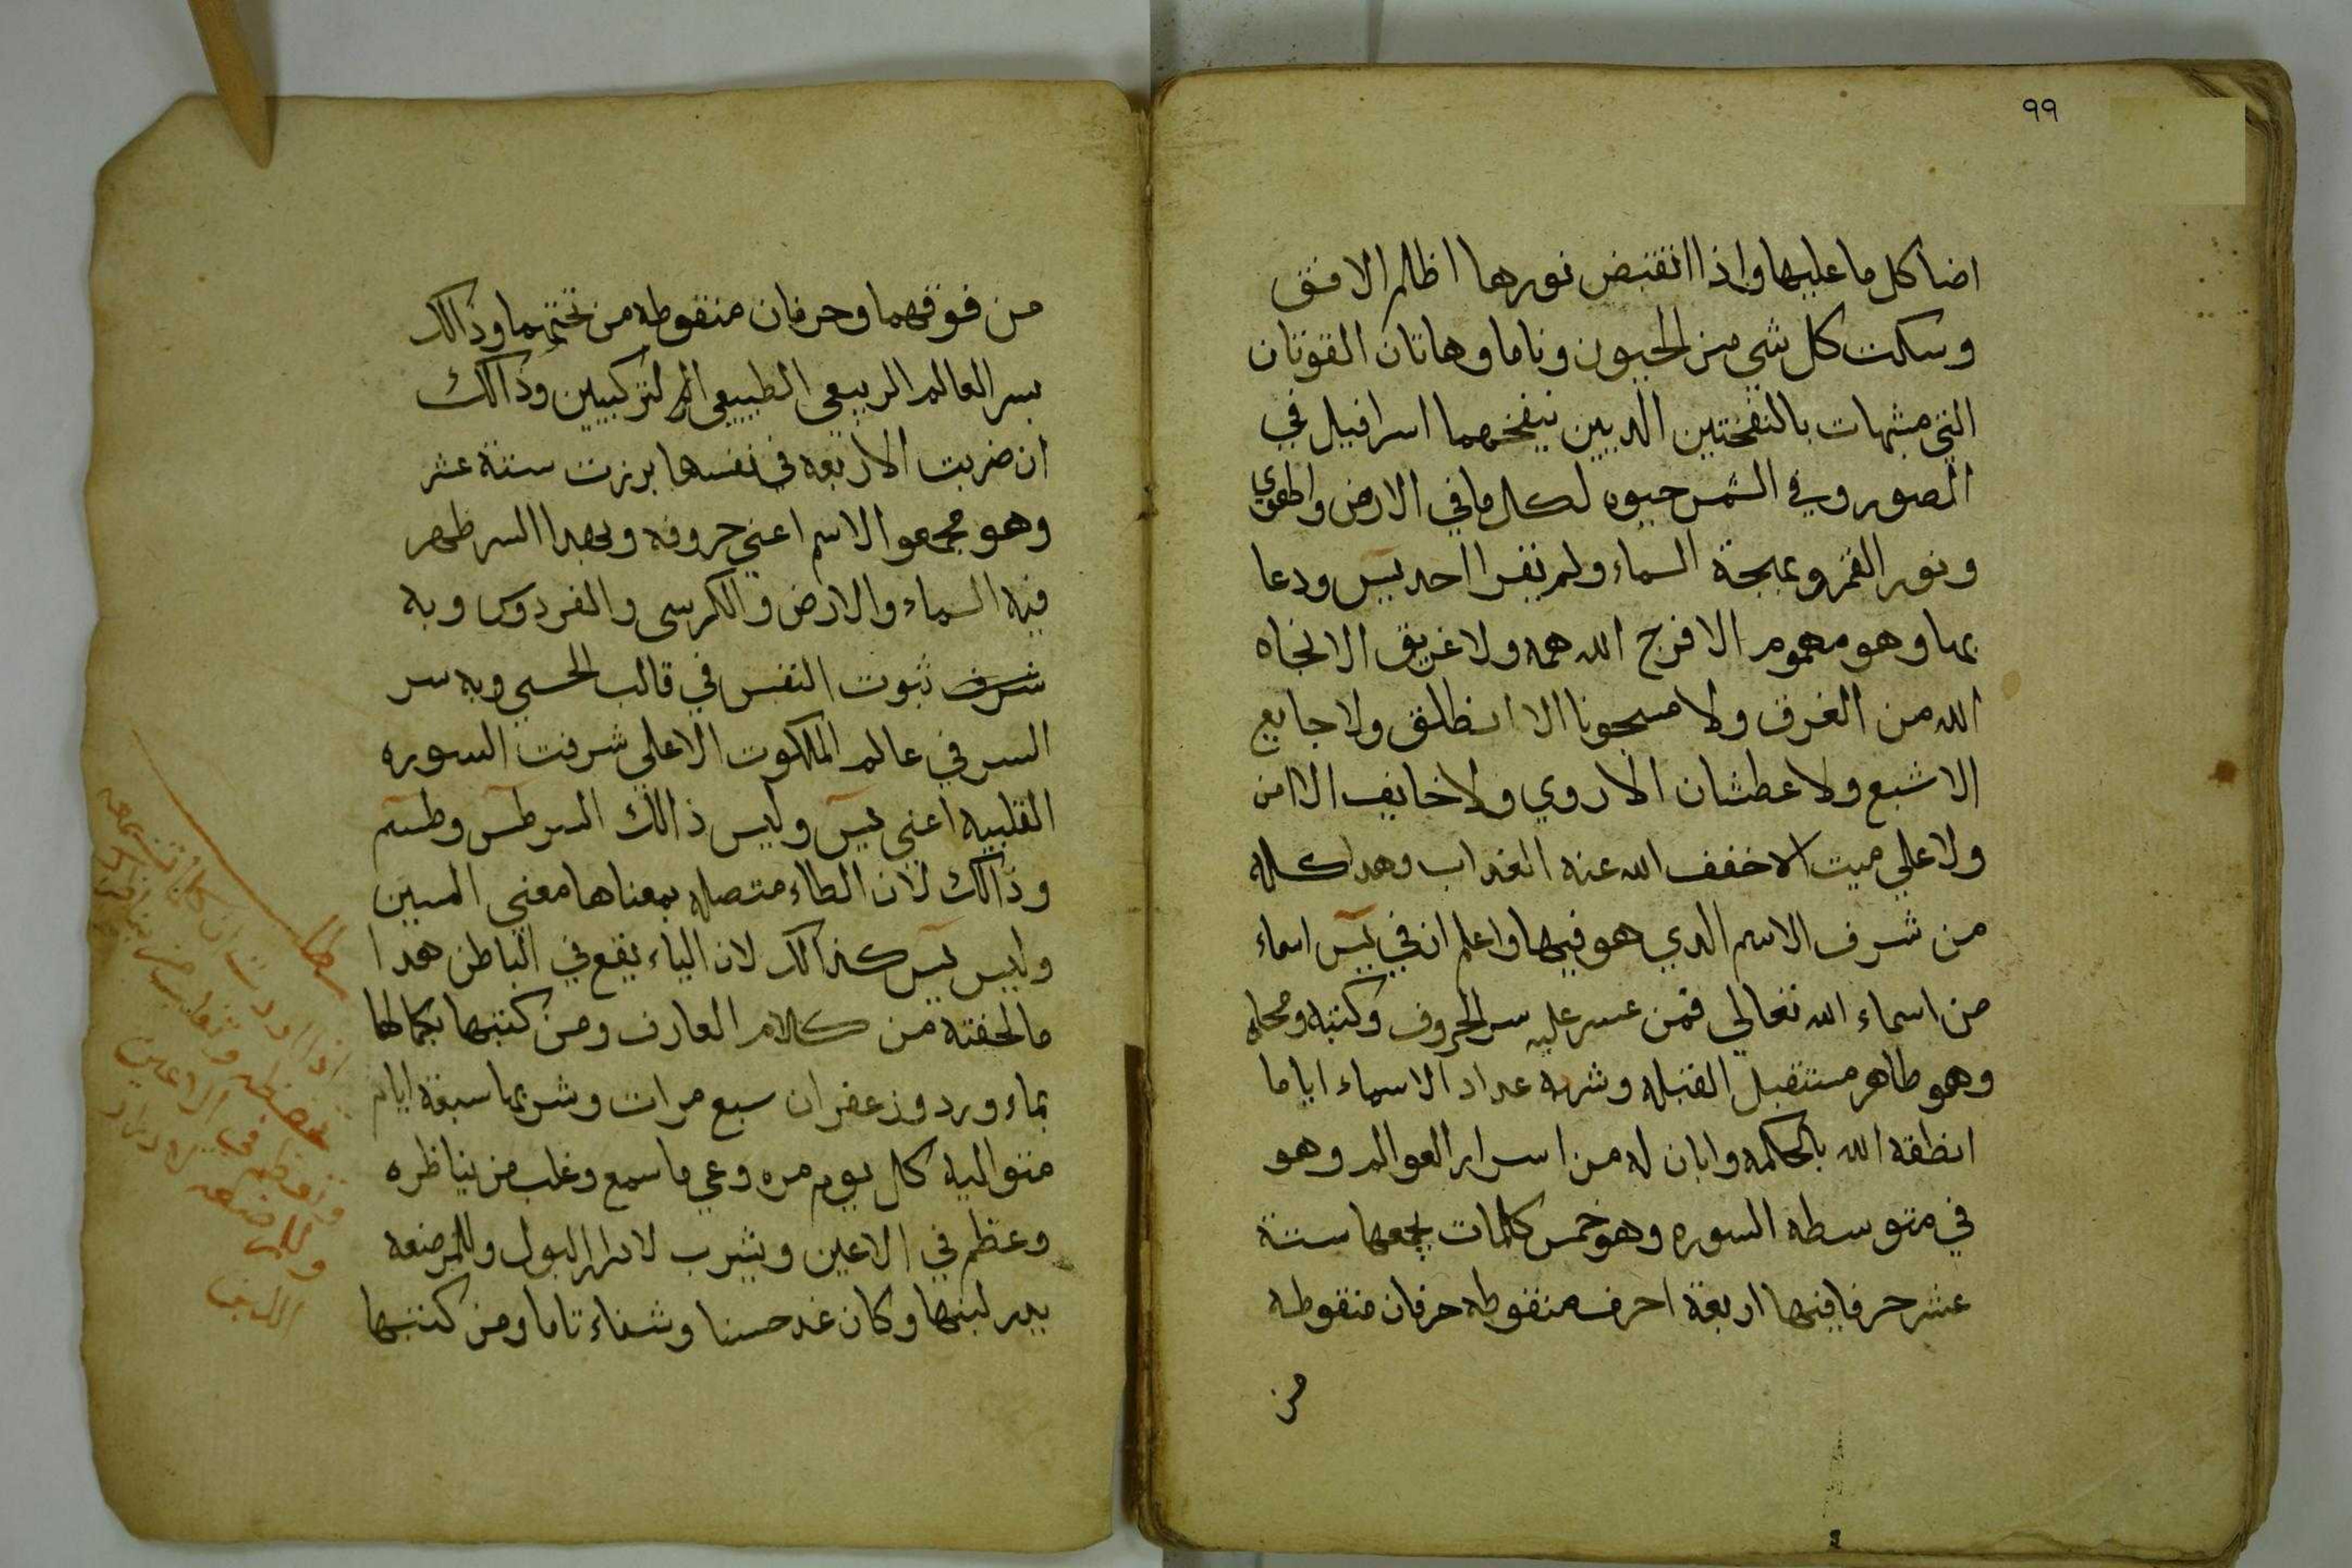 ٩٩
اضا كل ما عليها واذا انقبض نورها اظلم الافق
وسكت كل شي من الحيون وناما وهاتان القوتان
التي مشبهات بالنفختين الديين ينفخهما اسرافيل في
الصور وفي الشمس حيوه لكل ما في الارض
ونور القمر وبهجة السماء ولم يقرا احد يس ودعا
بها وهو مهموم الا فرج الله همه ولا غريق الا نجاه
الله من الغرق ولا مسجونا الا انطلق ولا جايع
الا شبع ولا عطشان الا روي ولا خايف الا امن
ولا علي ميت الا خفف الله عنه العذاب وهدا كله
من شرف الاسم الدي هو فيها واعلم ان في يس اسماء
من اسماء الله تعالي فمن عسر عليه سر الحروف وكتبه ومحاه
وهو طاهر مستقبل القبله وشربه عداد الاسماء اياما
انطقه الله بالحكمه وابان له من اسرار العوالم وهو
في متوسطه السوره وهو خمس كلمات يجمعها ستة
عشر حرفا فيها اربعة احرف منقوطه حرفان منقوطه
من
من فوقهما وحرفان منقوطه من تحتهما وذالك
بسر العالم الربيعي الطبيعي التركيبين وذالك
ان ضربت الاربعه في نفسها برزت ستة عشر
وهو مجمعوا الاسم اعني حروفه وبهدا السر ظهر
فيه السماء والارض والكرسي والفردوس وبه
شرف ثبوت النفس في قالب الحسي وبه سر
السر في عالم الملكوت الاعلي شرفت السوره
القلبيه اعني يس وليس ذالك السر طس وطسم
وذالك لان الطاء متصله بمعناها معني السين
وليس يس كذالك لان الياء يقع في الباطن هدا
ما لحقته من كلام العارف ومن كتبها بكمالها
بماء ورد وزعفران سبع مرات وشربها سبعة ايام
متواليه كل يوم مره وعي ما سمع وغلب من يناظره
وعظم في الاعين ويشرب لادرار البول وللمرضعه
يدر لبنها وكان غدا حسنا وشفاء تاما ومن كتبها
اذا اردت ان كل ما تسمعه
تحفظه وتغلب من يناظرك
في الاعين
وللمرضعه
اللبن